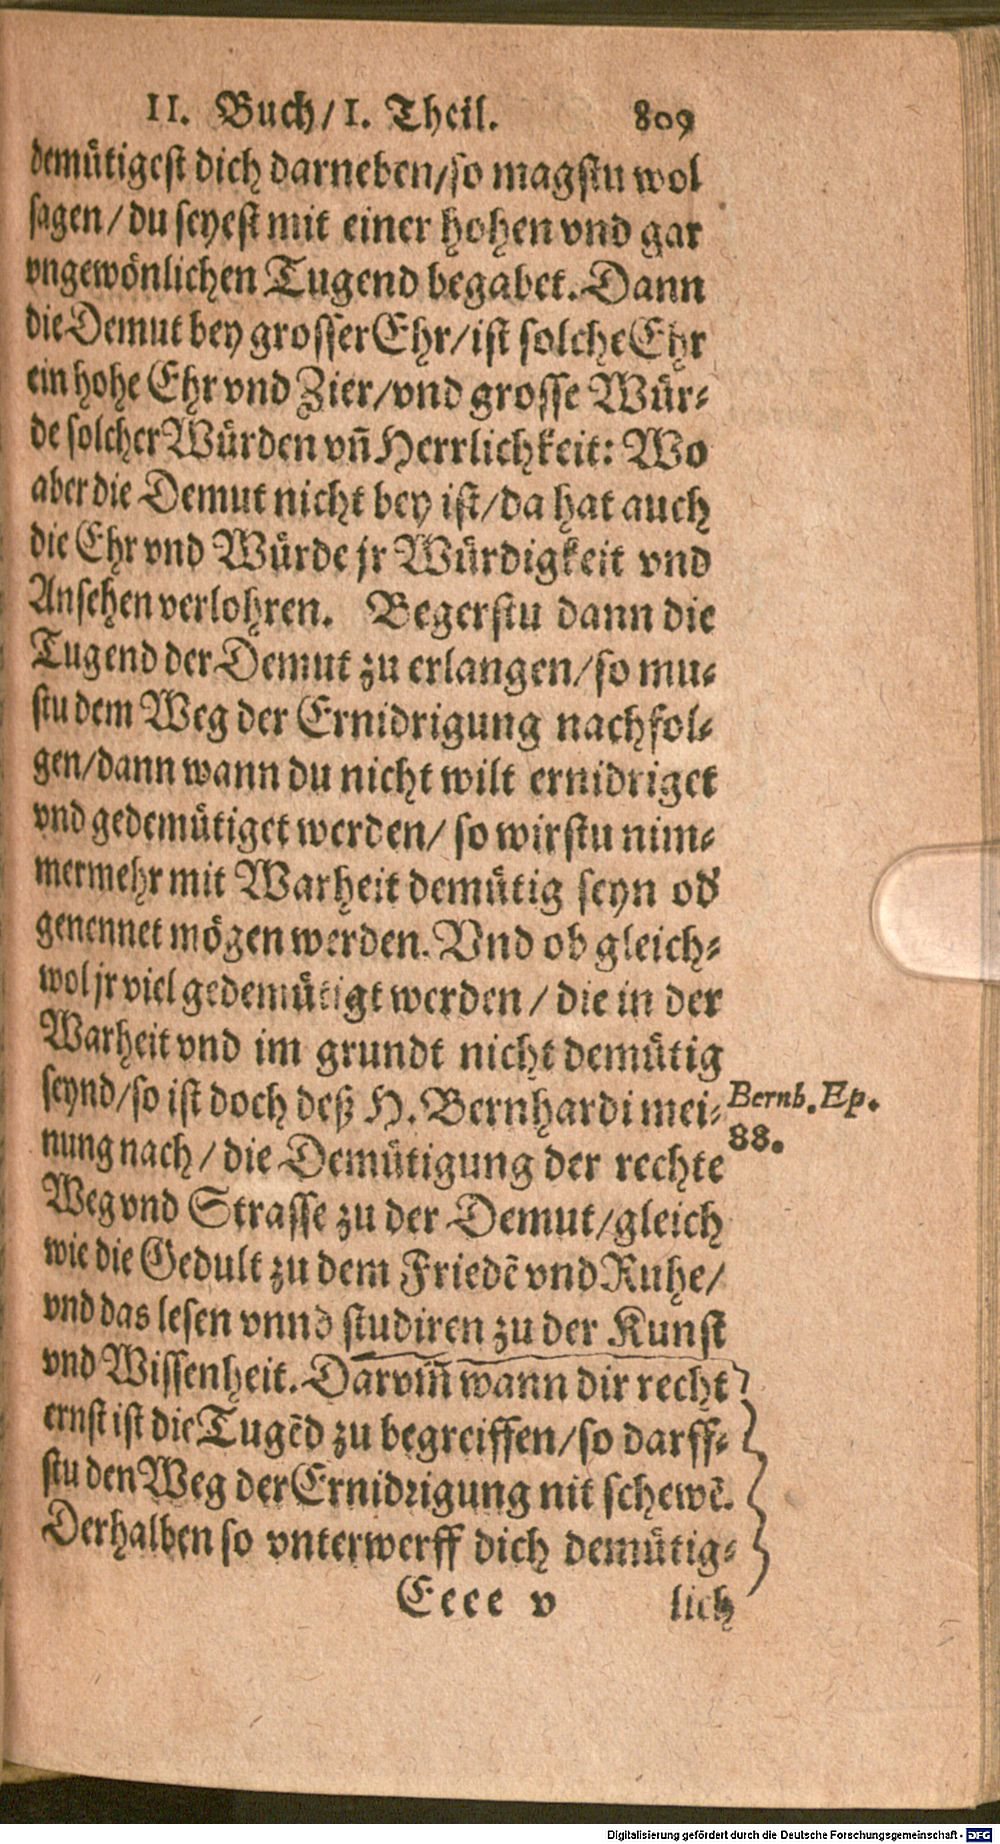 II. Buch/ I. Theil. 809
demütigest dich darneben/so magstu wol
sagen/ du seyest mit einer hohen vnd gar
vngewönlichen Tugend begabet. Dann
die Demut bey grosser Ehr/ist solche Ehr
ein hohe Ehr vnd Zier/vnd grosse Wür-
de solcher Würden vñ Herrlichkeit: Wo
aber die Demut nicht bey ist/da hat auch
die Ehr vnd Würde jr Würdigkeit vnd
Ansehen verlohren. Begerstu dann die
Tugend der Demut zu erlangen/so mu-
stu dem Weg der Ernidrigung nachfol-
gen/dann wann du nicht wilt ernidriget
vnd gedemütiget werden/ so wirstu nim-
mermehr mit Warheit demütig seyn od'
genennet mögen werden. Vnd ob gleich-
wol jr viel gedemütigt werden/ die in der
Warheit vnd im grundt nicht demütig
seynd/so ist doch deß H. Bernhardi mei-
Bernh. Ep.
88.
nung nach/ die Demütigung der rechte
Weg vnd Strasse zu der Demut/gleich
wie die Gedult zu dem Friedẽ vnd Ruhe/
vnd das lesen vnnd studiren zu der Kunst
vnd Wissenheit. Darvm̃ wann dir recht
ernst ist die Tugẽd zu begreiffen/so darff-
stu den Weg der Ernidrigung nit schewẽ.
Derhalben so vnterwerff dich demütig-
Eeee v lich
Digitalisierung gefördert durch die Deutsche Forschungsgemeinschaft - DFG